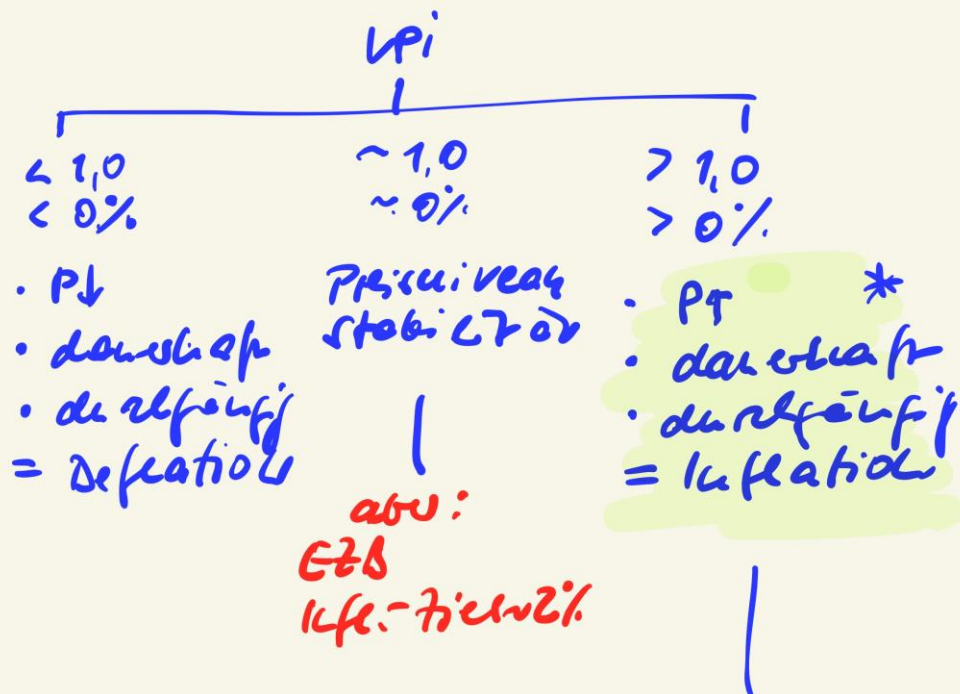 VPI
< 1,0
< 0%
• P↓
• dauerhaft
• durchgängig
= Deflation
~ 1,0
~ 0%
Preisniveau
stabilität
aber:
EZB
Infl.-Ziel ~2%
> 1,0
> 0%
• P↑ *
• dauerhaft
• durchgängig
= Inflation